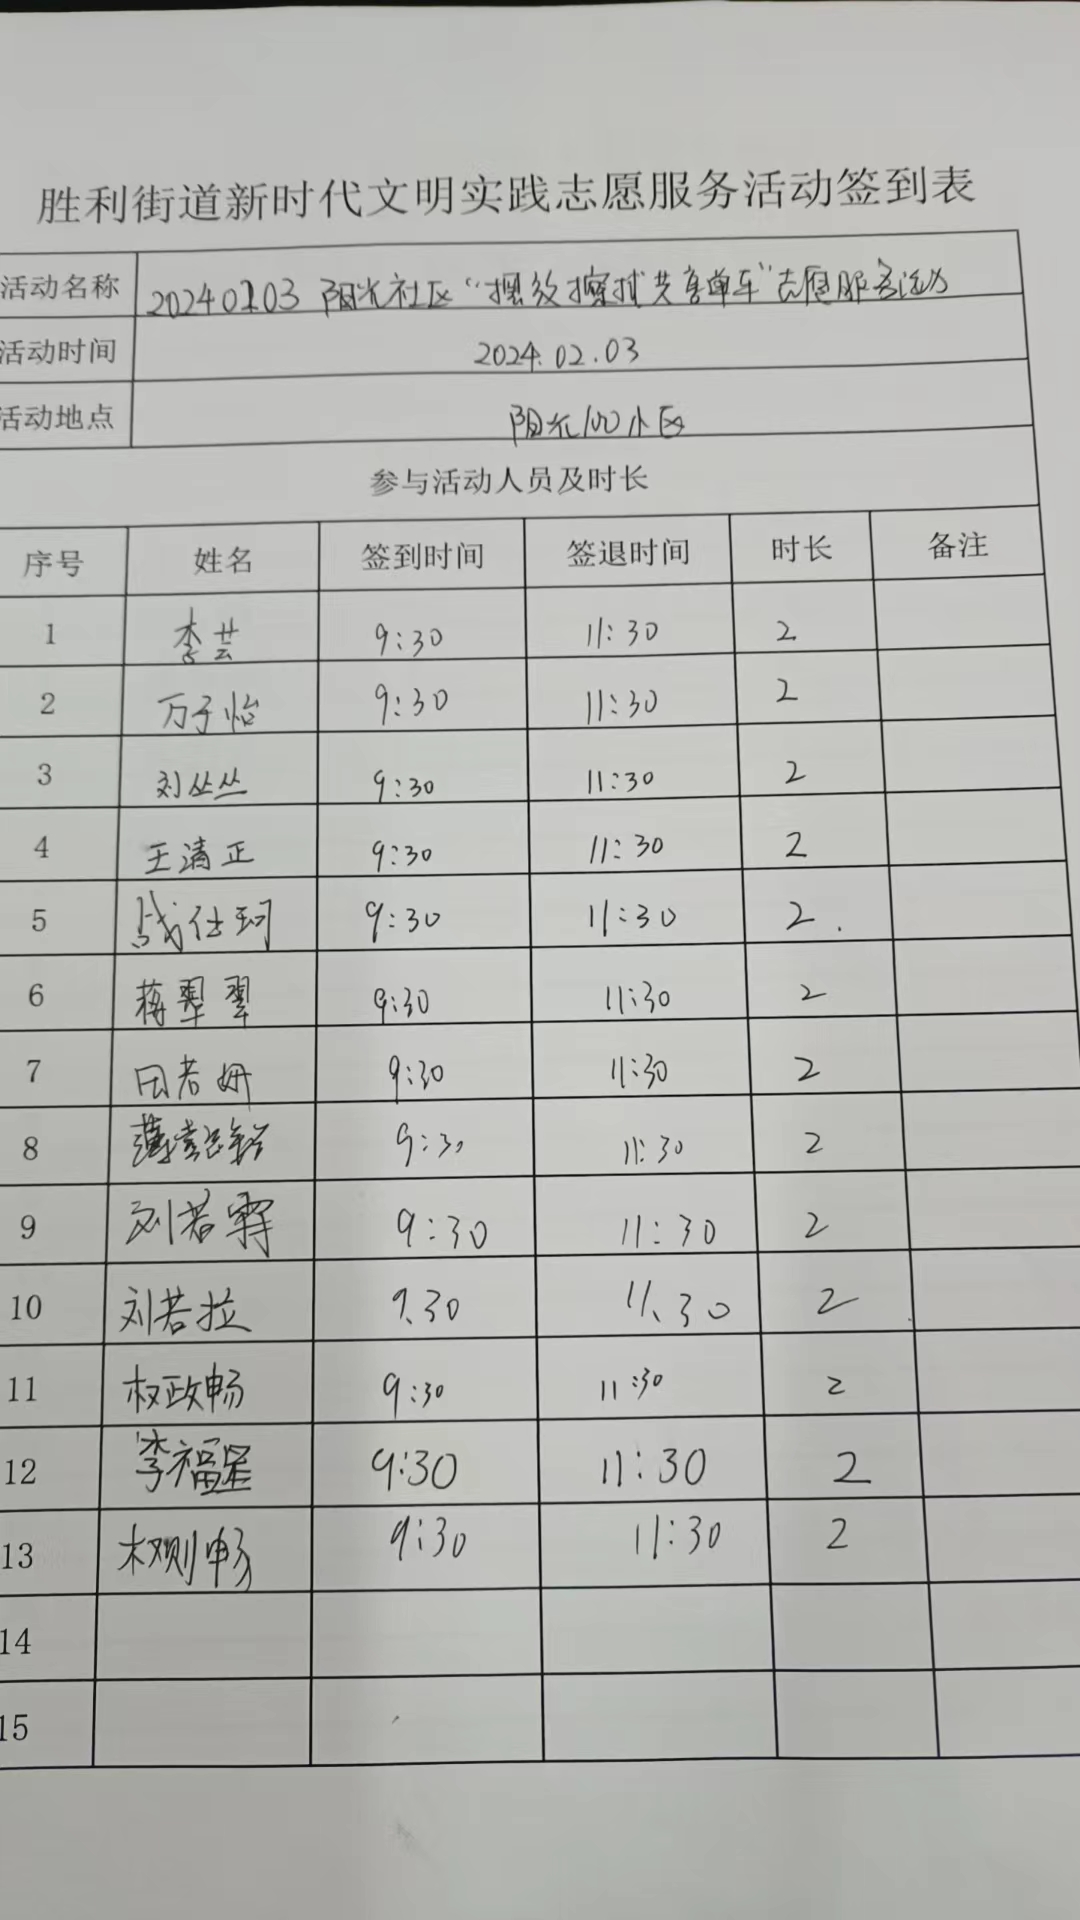 胜利街道新时代文明实践志愿服务活动签到表
活动名称 20240203 阳光社区“摆放擦拭共享单车”志愿服务活动
活动时间 2024.02.03
活动地点 阳光100小区
参与活动人员及时长
序号 姓名 签到时间 签退时间 时长 备注
1 李芸 9:30 11:30 2
2 万子怡 9:30 11:30 2
3 刘丛丛 9:30 11:30 2
4 王清正 9:30 11:30 2
5 战仕珂 9:30 11:30 2.
6 蒋翠翠 9:30 11:30 2
7 田若妍 9:30 11:30 2
8 9:30 11:30 2
9 刘若霏 9:30 11:30 2
10 刘若拉 9.30 11.30 2
11 权政畅 9:30 11:30 2
12 李福星 9:30 11:30 2
13 权则畅 9:30 11:30 2
14
15